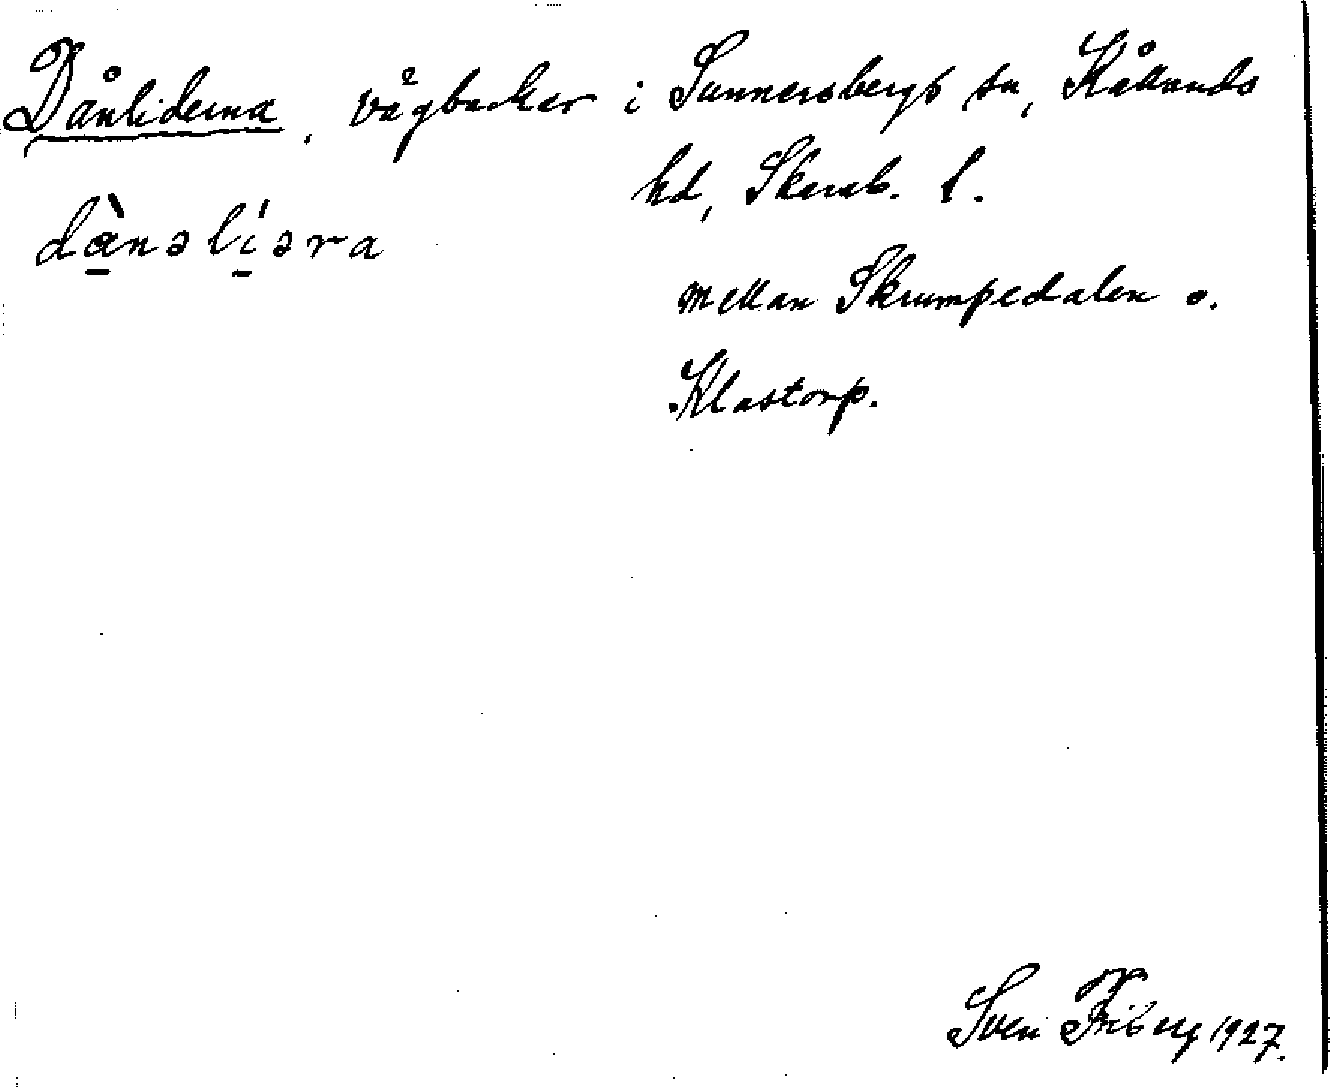 Dånliderna, vägbacker i Sunnersbergs sn, Kållands
hd, Skarab. l.
dànəlíəra
mellan Skrumpedalen o.
Klastorp.
Sven Friberg 1927.